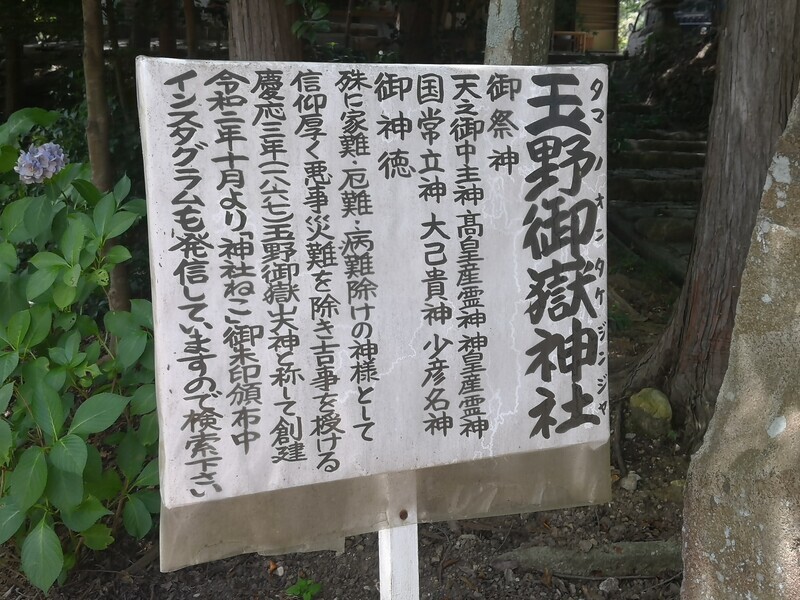 玉野御嶽神社
タマノオンタケジンジャ
御祭神
天之御中主神 高皇産霊神 神皇産霊神
国常立神 大己貴神 少彦名神
御神徳
殊に家難・厄難・病難除けの神様として
信仰厚く悪事災難を除き吉事を授ける
慶応三年(一八六七)玉野御嶽大神と称して創建
令和二年十月より「神社ねこ」御朱印頒布中
インスタグラムも発信していますので検索下さい